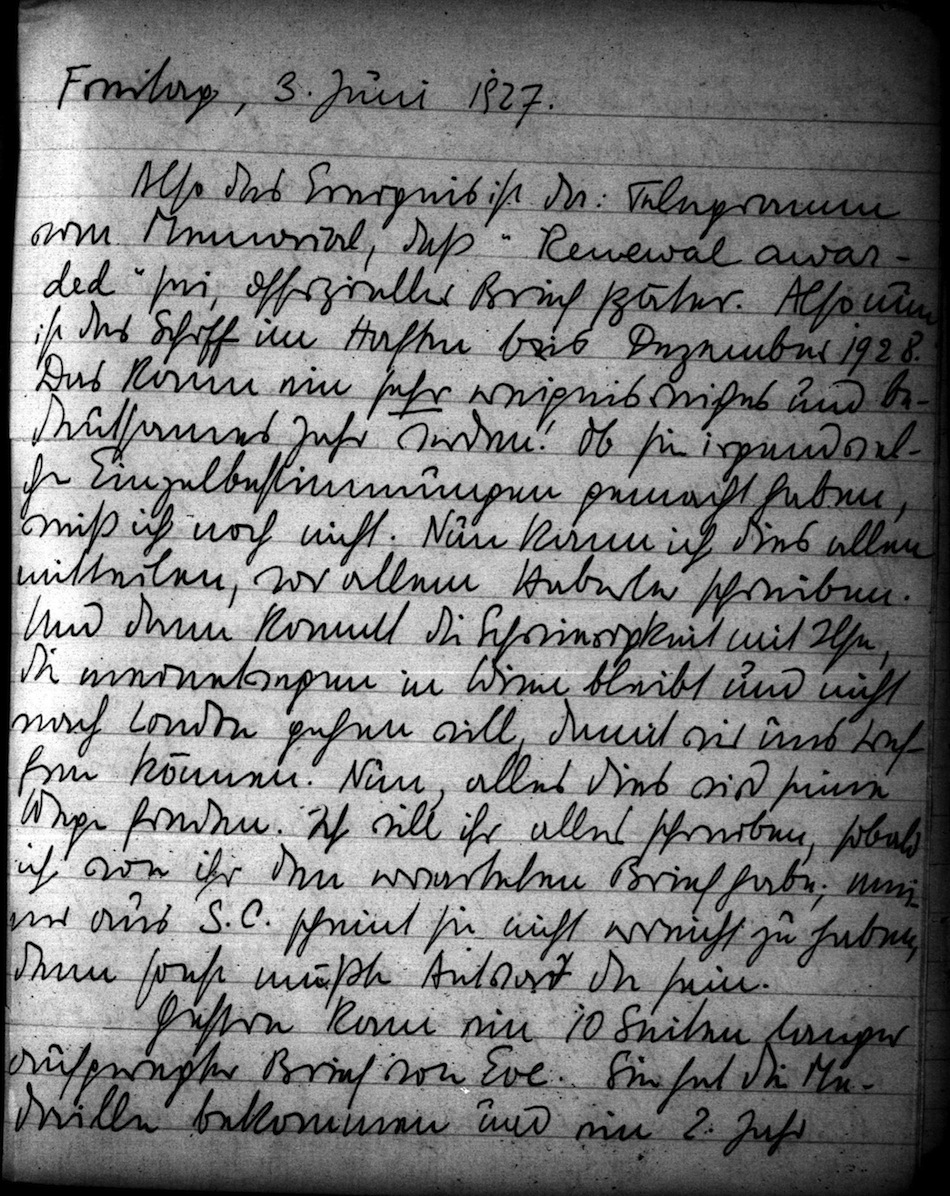 Freitag, 3. Juni 1927.
Also das Ereignis ist da: Telegramm
vom Memorial, daß "Renewal awar-
ded" sei, offizieller Brief später. Also nun
ist das Schiff im Hafen bis Dezember 1928.
Das kann ein sehr ereignisreiches und be-
deutsames Jahr werden! Ob sie irgendwel-
che Einzelbestimmungen gemacht haben,
weiß ich noch nicht. Nun kann ich dies allen
mitteilen, vor allem Haberler schreiben.
Und dann kommt die Schwierigkeit mit Ilse,
die meinetwegen in Wien bleibt und nicht
nach London gehen will, damit wir uns tref-
fen können. Nun, alles dies wird seine
Wege finden. Ich will ihr alles schreiben, sobald
ich von ihr den erwarteten Brief habe; mei-
ner aus S.C. scheint sie nicht erreicht zu haben,
denn sonst müßte Antwort da sein.
Gestern kam ein 10 Seiten langer
aufgeregter Brief von Eve. Sie hat die Me-
daille bekommen und ein 2. Jahr